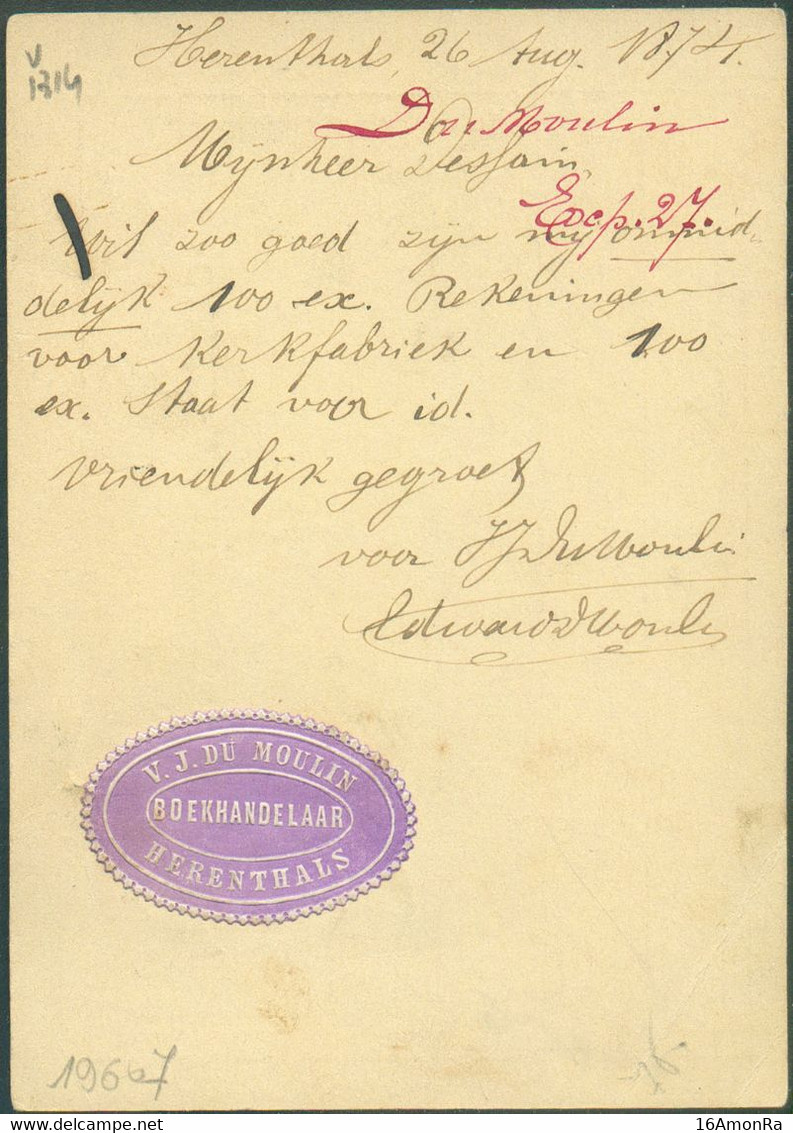 Herenthals, 26 Aug. 1874.
V
1314
Du Moulin
Mynheer Dessain,
Exp. 27.
Wil zoo goed zijn my onmid-
delijk 100 ex. Rekeningen
voor Kerkfabriek en 100
ex. Staat voor id.
Vriendelijk gegroet
voor VJ DuMoulin
Edward DMoulin
V. J. DU MOULIN
BOEKHANDELAAR
HERENTHALS
19667
16AmonRa